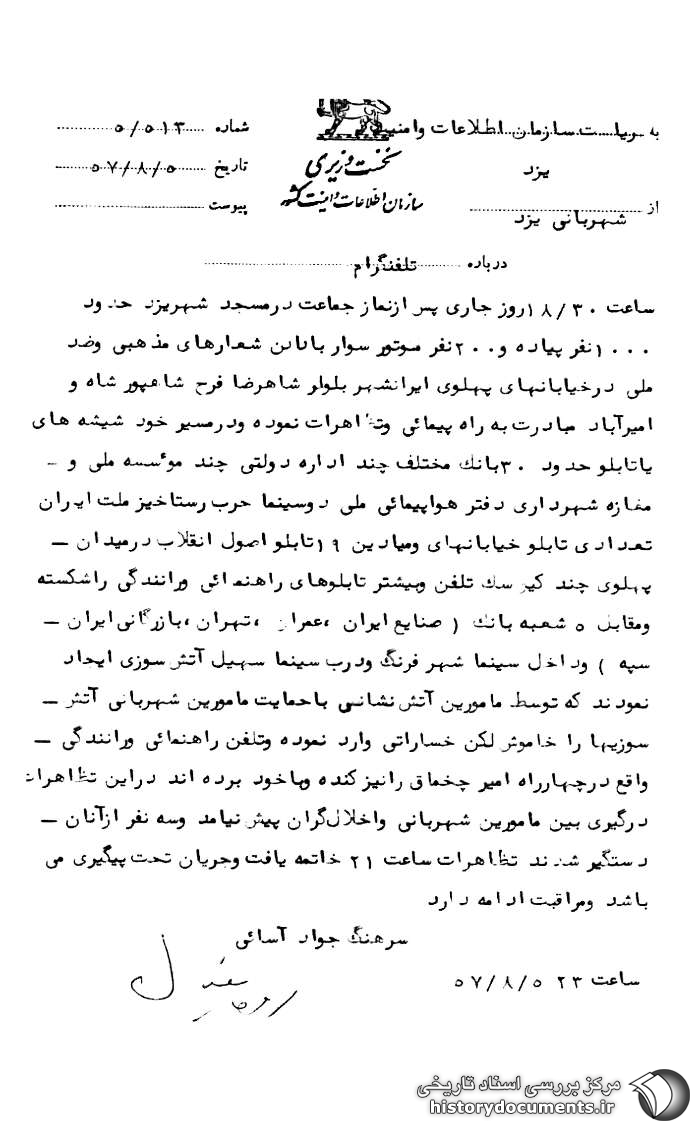 به ریاست سازمان اطلاعات وامنیت
شماره ۵/۵۱۳
یزد
نخست وزیری
تاریخ ۵۷/۸/۵
از شهربانی یزد
سازمان اطلاعات و امنیت کشور
پیوست
درباره تلفنگرام
ساعت ۱۸/۳۰ روز جاری پس ازنماز جماعت درمسجد شهریزد حدود
۱۰۰۰نفر پیاده و۲۰۰نفر موتور سوار بادادن شعارهای مذهبی وضد
ملی درخیابانهای پهلوی ایرانشهر بلوار شاهرضا فرح شاهپور شاه و
امیرآباد مبادرت به راه پیمائی وتظاهرات نموده ودرمسیر خود شیشه های
یاتابلو حدود ۳۰بانک مختلف چند اداره دولتی چند موئسسه ملی و -
مغازه شهرداری دفتر هواپیمائی ملی دوسینما حزب رستاخیز ملت ایران
تعدادی تابلو خیابانهای ومیادین ۱۹تابلو اصول انقلاب درمیدان -
پهلوی چند کیوسک تلفن وبیشتر تابلوهای راهنمائی ورانندگی راشکسته
ومقابل ۵ شعبه بانک ( صنایع ایران ،عمران ،تهران ،بازرگانی ایران -
سپه ) وداخل سینما شهر فرنگ ودرب سینما سهیل آتش سوزی ایجاد
نمودند که توسط مامورین آتش نشانی باحمایت مامورین شهربانی آتش -
سوزیها را خاموش لکن خساراتی وارد نموده وتلفن راهنمائی ورانندگی -
واقع درچهارراه امیر چخماق رانیزکنده وباخود برده اند دراین تظاهرات
درگیری بین مامورین شهربانی واخلال‌گران پیش نیامد وسه نفر ازآنان -
دستگیر شدند تظاهرات ساعت ۲۱ خاتمه یافت وجریان تحت پیگیری می
باشد ومراقبت ادامه دارد
سرهنگ جواد آسائی
ساعت ۲۳ ۵۷/۸/۵
مرکز بررسی اسناد تاریخی
historydocuments.ir